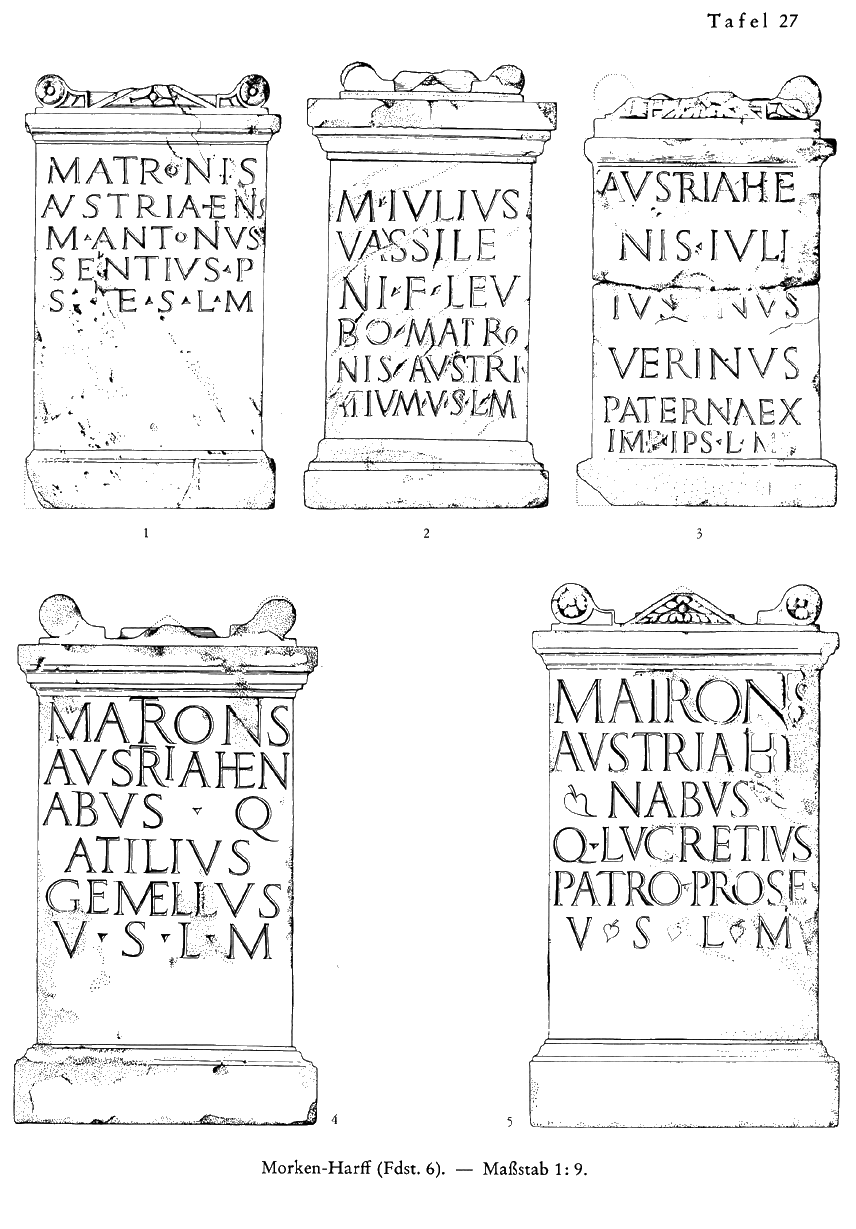 Tafel 27
MATRONIS
AVSTRIAHENS
M·ANTONVS
SENTIVS·P
S· ·E·S·L·M
1
M·IVLIVS
VASSILE
NI·F·LEV
BO·MATRO
NIS·AVSTRI
ATIUM·V·S·L·M
2
AVSTRIAHE
NIS·IVLI
IVS NVS
VERINVS
PATERNAEX
IMP·IPS·L·M
3
MATRONS
AVSTRIAHEN
ABVS · Q
ATILIVS
GEMELLVS
V·S·L·M
4
MATRONIS
AVSTRIAHE
NABVS
Q·LVCRETIVS
PATRO·PROSE
V S L M
5
Morken-Harff (Fdst. 6). — Maßstab 1:9.